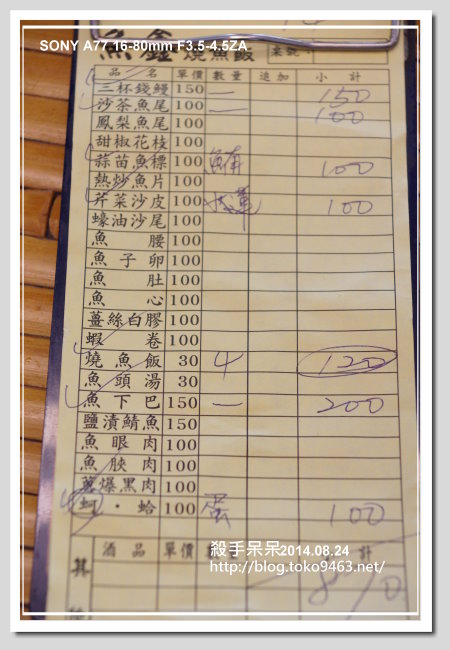 魚鑫 燒魚飯 桌號
SONY A77 16-80mm F3.5-4.5ZA
品名 單價 數量 追加 小計
三杯錢鰻 150 一 150
沙茶魚尾 100 一 100
鳳梨魚尾 100
甜椒花枝 100
蒜苗魚標 100 鮪 100
熱炒魚片 100
芹菜沙皮 100 100
蠔油沙尾 100
魚腰 100
魚子卵 100
魚肚 100
魚心 100
薑絲白膠 100
蝦卷 100
燒魚飯 30 4 120
魚頭湯 30
魚下巴 150 一 200
鹽漬鯖魚 150
魚眼肉 100
魚脥肉 100
蔥爆黑肉 100
蚵・蛤 100 蛋 100
酒品 單價 計
殺手呆呆2014.08.24
http://blog.toko9463.net/
其 810